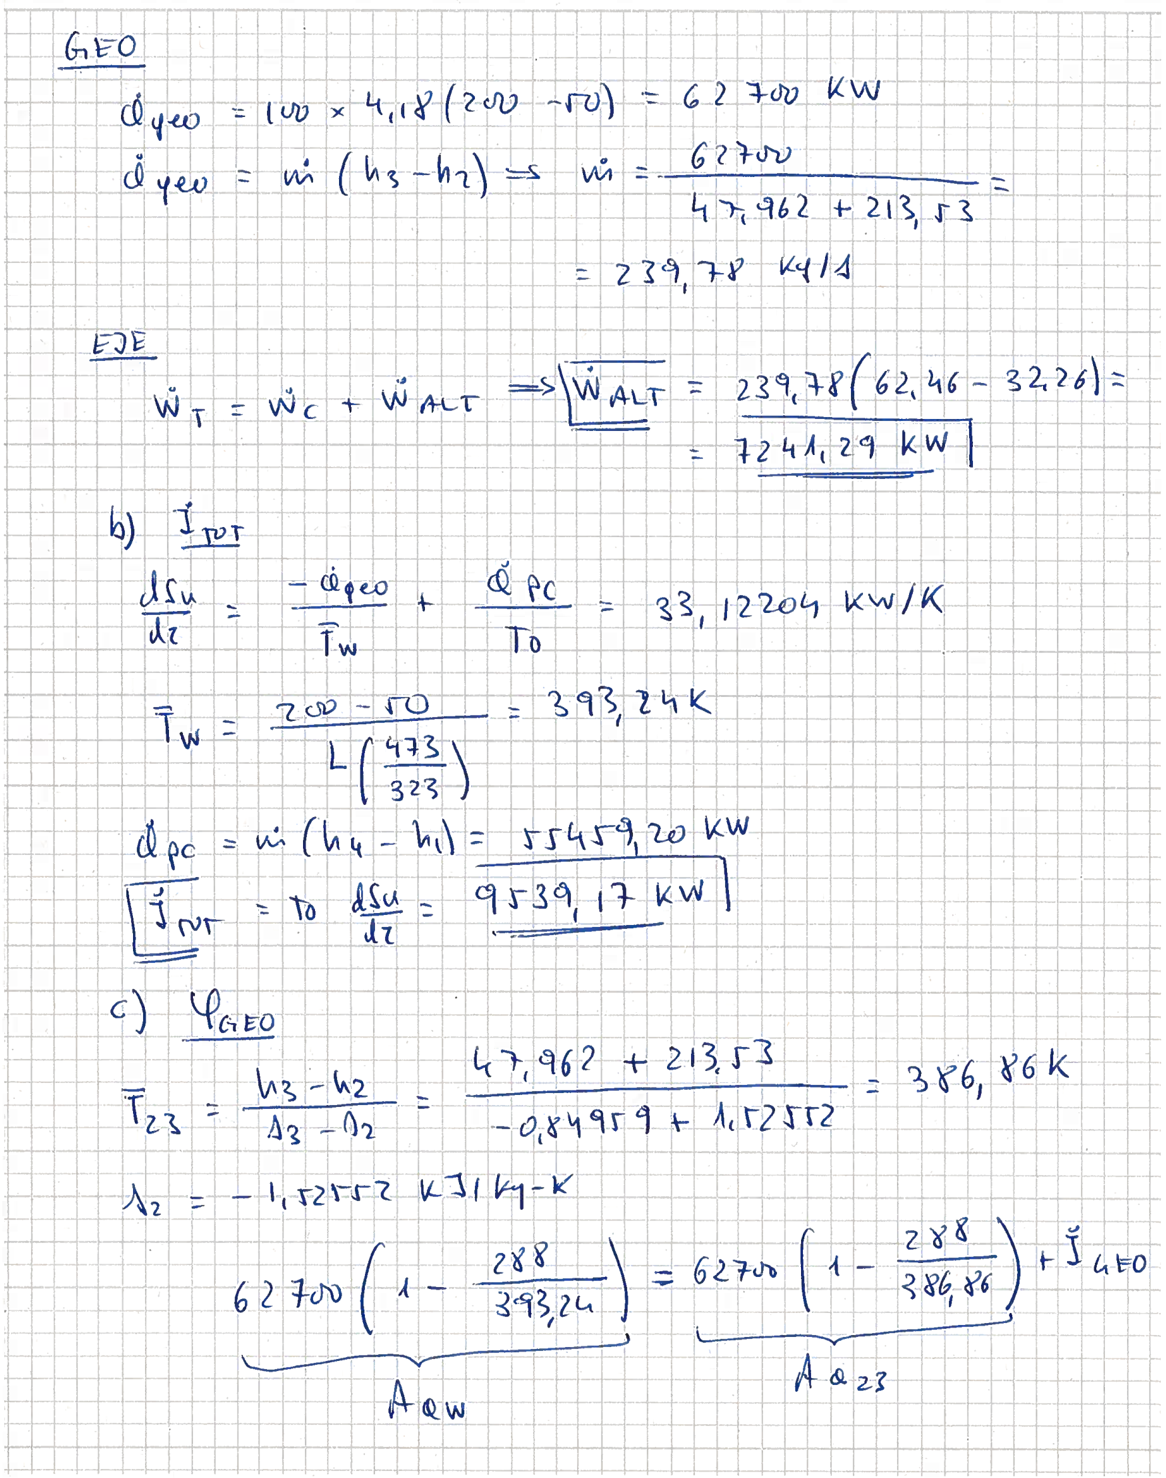 GEO
Q̇geo = 100 × 4,18 (200 - 50) = 62700 KW
Q̇geo = ṁ (h3 - h2) ⇒ ṁ = 62700 / (47,962 + 213,53) =
= 239,78 Kg/s
EJE
ẆT = ẆC + ẆALT ⇒ ẆALT = 239,78 (62,46 - 32,26) =
= 7241,29 KW
b) İTOT
dSu/dτ = -Q̇geo/T̄W + Q̇PC/T0 = 33,12204 KW/K
T̄W = (200 - 50) / L(473/323) = 393,24 K
Q̇PC = ṁ (h4 - h1) = 55459,20 KW
İTOT = T0 dSu/dτ = 9539,17 KW
c) φGEO
T̄23 = (h3 - h2)/(s3 - s2) = (47,962 + 213,53)/(-0,84959 + 1,52552) = 386,86 K
s2 = -1,52552 KJ/Kg-K
62700 (1 - 288/393,24) = 62700 (1 - 288/386,86) + İGEO
AQW AQ23